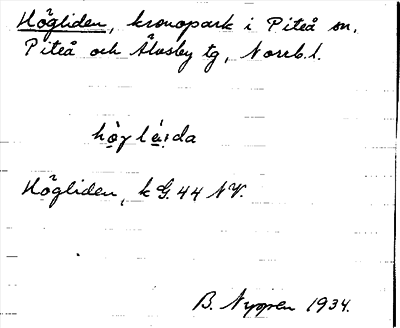 Högliden, kronopark i Piteå sn,
Piteå och Älvsby tg, Norrb. l.
Högliden, k G. 44 NV.
B. Nygren 1934.